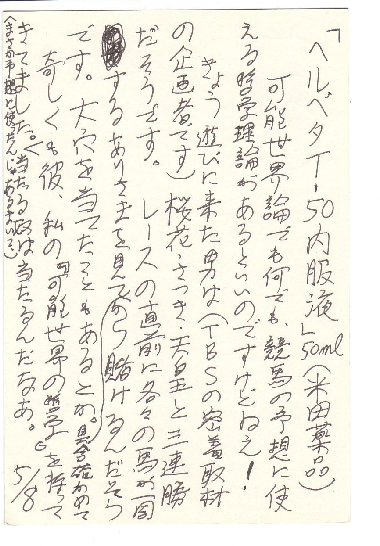 「ヘルベタT-50内服液」50ml（米田薬品）
可能世界論でも何でも、競馬の予想に使
える哲学理論があるといいのですけどねえ！
きょう遊びに来た男は（TBSの密着取材
の企画者です）桜花・さつき・天皇と三連勝
だそうです。レースの直前に各々の馬が一周
するありさまを見てから賭けるんだそう
です。大穴を当てたこともあるとか。具合確かめて
奇しくも彼、私の『可能世界の哲学』を持って
きてました。当たる奴は当たるんだなあ。5/8
（まさか予想に使ったんじゃあるまいて）